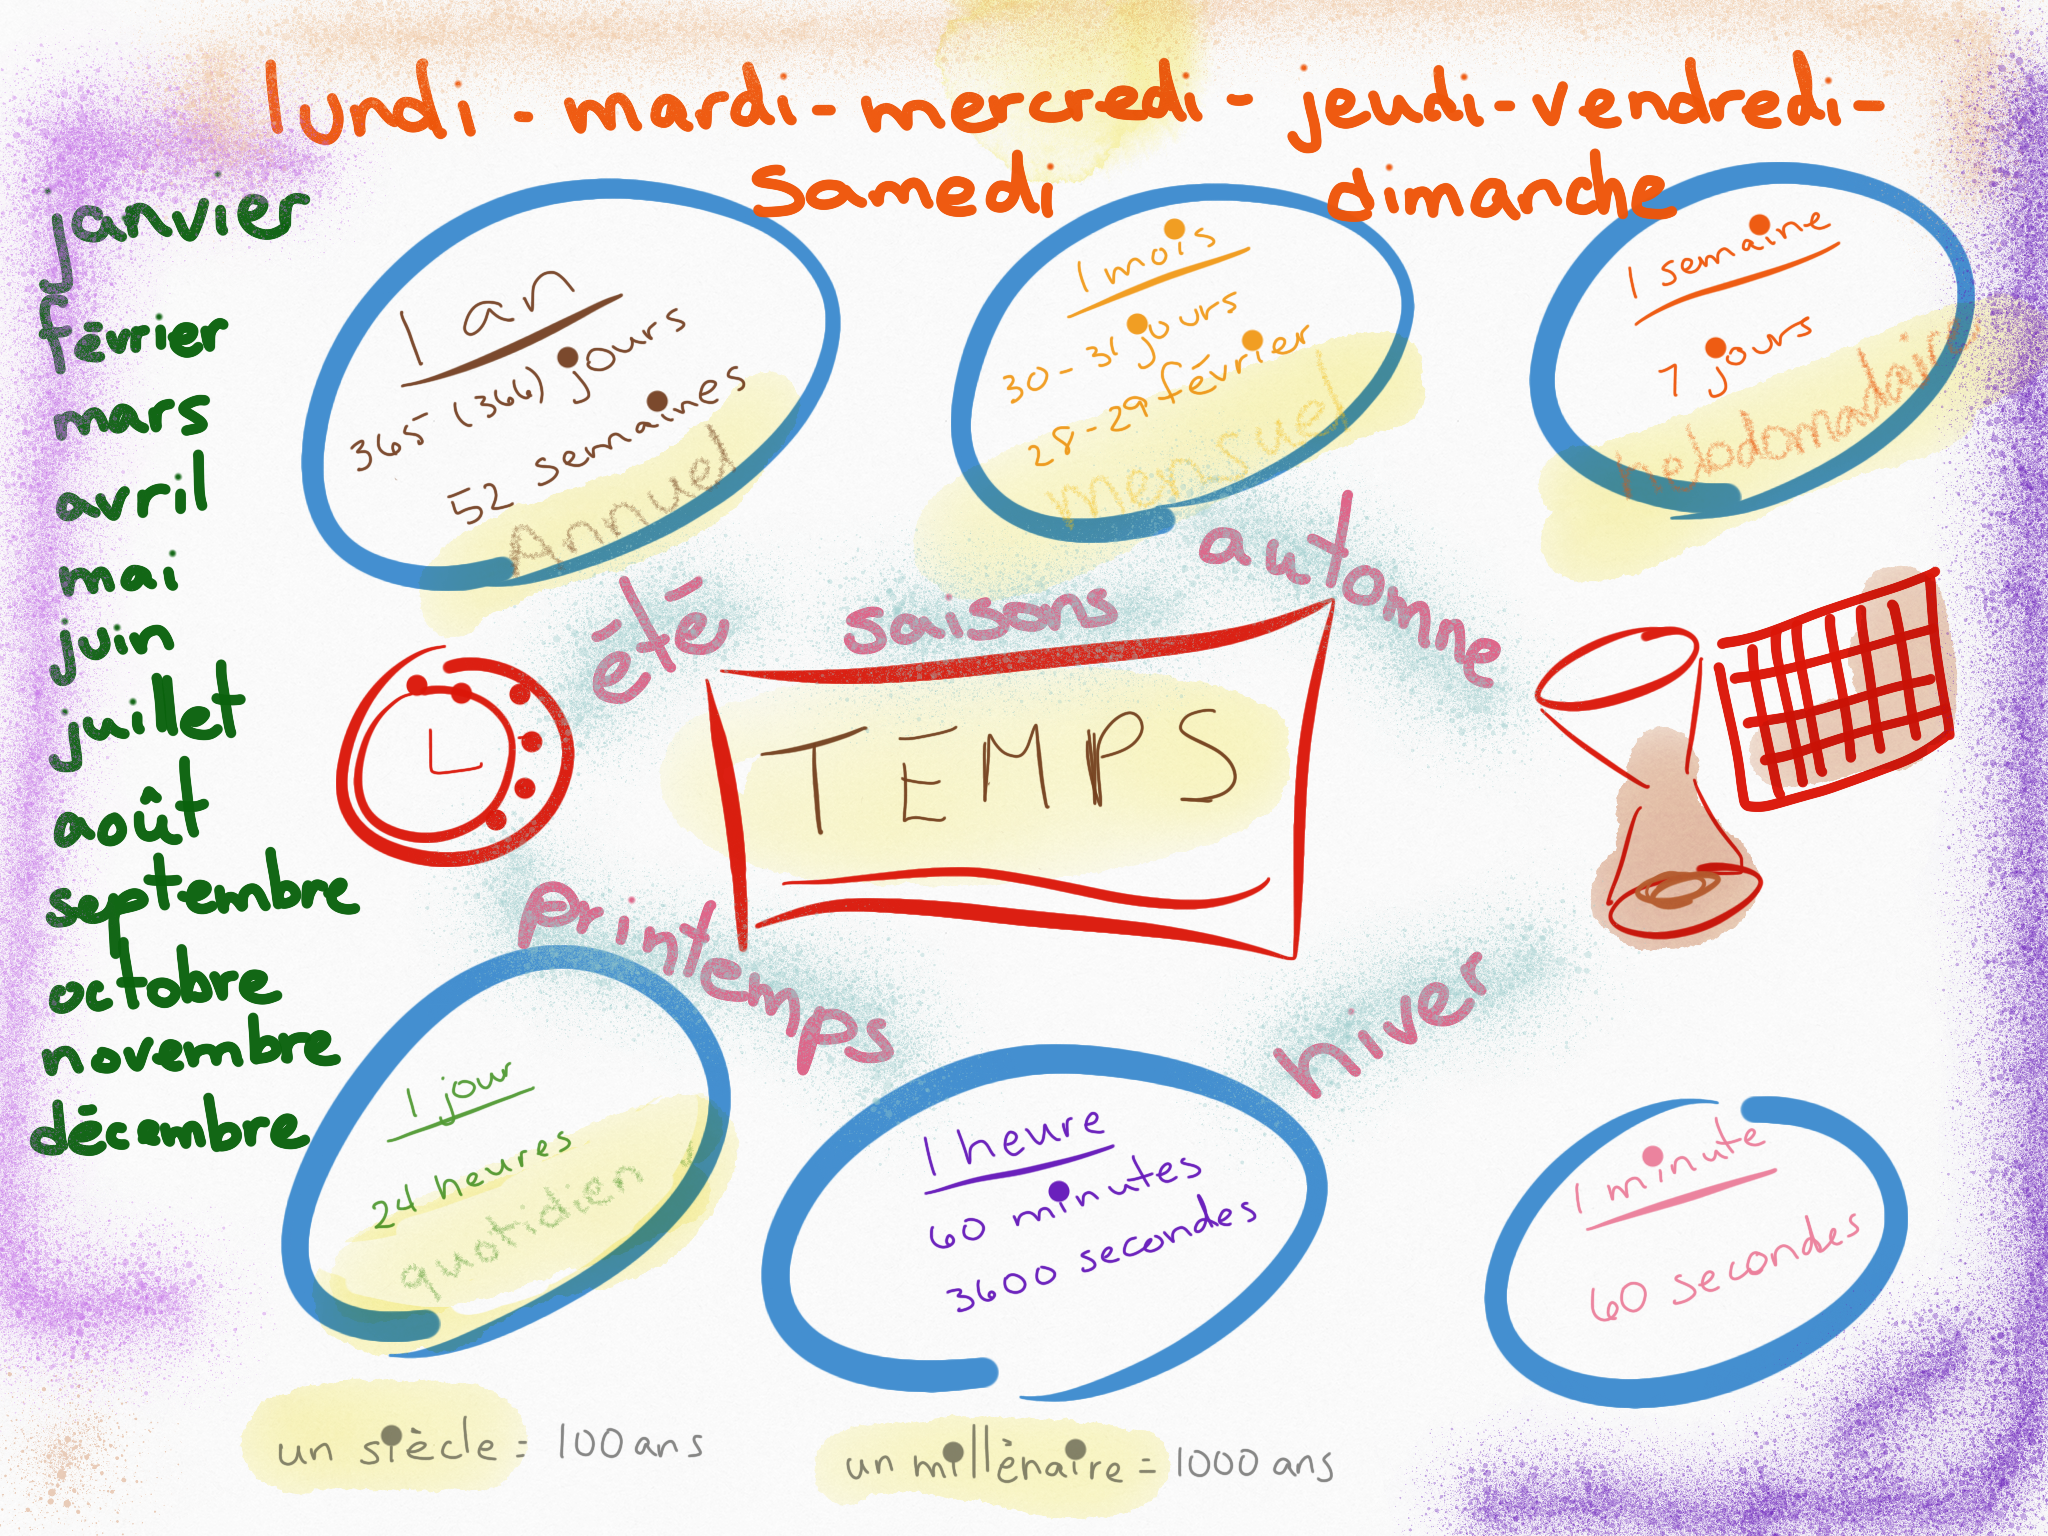 lundi - mardi - mercredi - jeudi - vendredi -
samedi dimanche
janvier
février
mars
avril
mai
juin
juillet
août
septembre
octobre
novembre
décembre
1 an
365 (366) jours
52 semaines
Annuel
1 mois
30-31 jours
28-29 février
mensuel
1 semaine
7 jours
hebdomadaire
été
saisons
automne
TEMPS
printemps
hiver
1 jour
24 heures
quotidien
1 heure
60 minutes
3600 secondes
1 minute
60 secondes
un siècle = 100 ans
un millénaire = 1000 ans